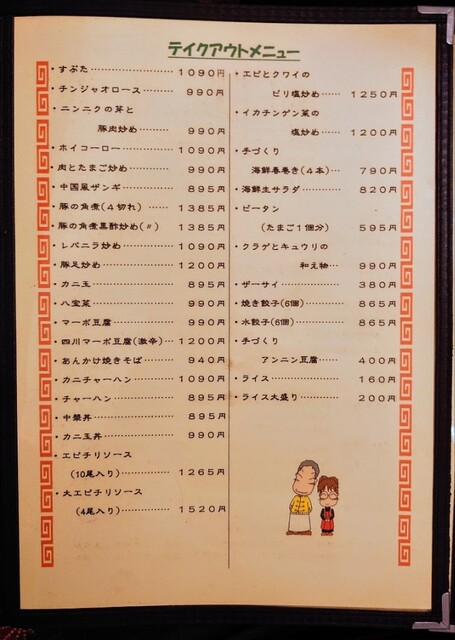 テイクアウトメニュー
・すぶた…………………… 1090円
・チンジャオロース……… 990円
・ニンニクの芽と
豚肉炒め……… 990円
・ホイコーロー…………… 1090円
・肉とたまご炒め………… 990円
・中国風ザンギ…………… 895円
・豚の角煮(4切れ) …… 1385円
・豚の角煮黒酢炒め(〃) 1385円
・レバニラ炒め…………… 1090円
・豚足炒め………………… 1200円
・カニ玉…………………… 895円
・八宝菜…………………… 990円
・マーボ豆腐……………… 990円
・四川マーボ豆腐(激辛)… 1200円
・あんかけ焼きそば……… 940円
・カニチャーハン………… 1090円
・チャーハン……………… 895円
・中華丼…………………… 895円
・カニ玉丼………………… 990円
・エビチリソース
(10尾入り)…………… 1265円
・大エビチリソース
(4尾入り)…………… 1520円
・エビとクワイの
ピリ塩炒め…… 1250円
・イカチンゲン菜の
塩炒め…… 1200円
・手づくり
海鮮春巻き(4本)… 790円
・海鮮生サラダ………… 820円
・ピータン
(たまご1個分) 595円
・クラゲとキュウリの
和え物… 990円
・ザーサイ……………… 380円
・焼き餃子(6個)……… 865円
・水餃子(6個)………… 865円
・手づくり
アンニン豆腐…… 400円
・ライス………………… 160円
・ライス大盛り………… 200円